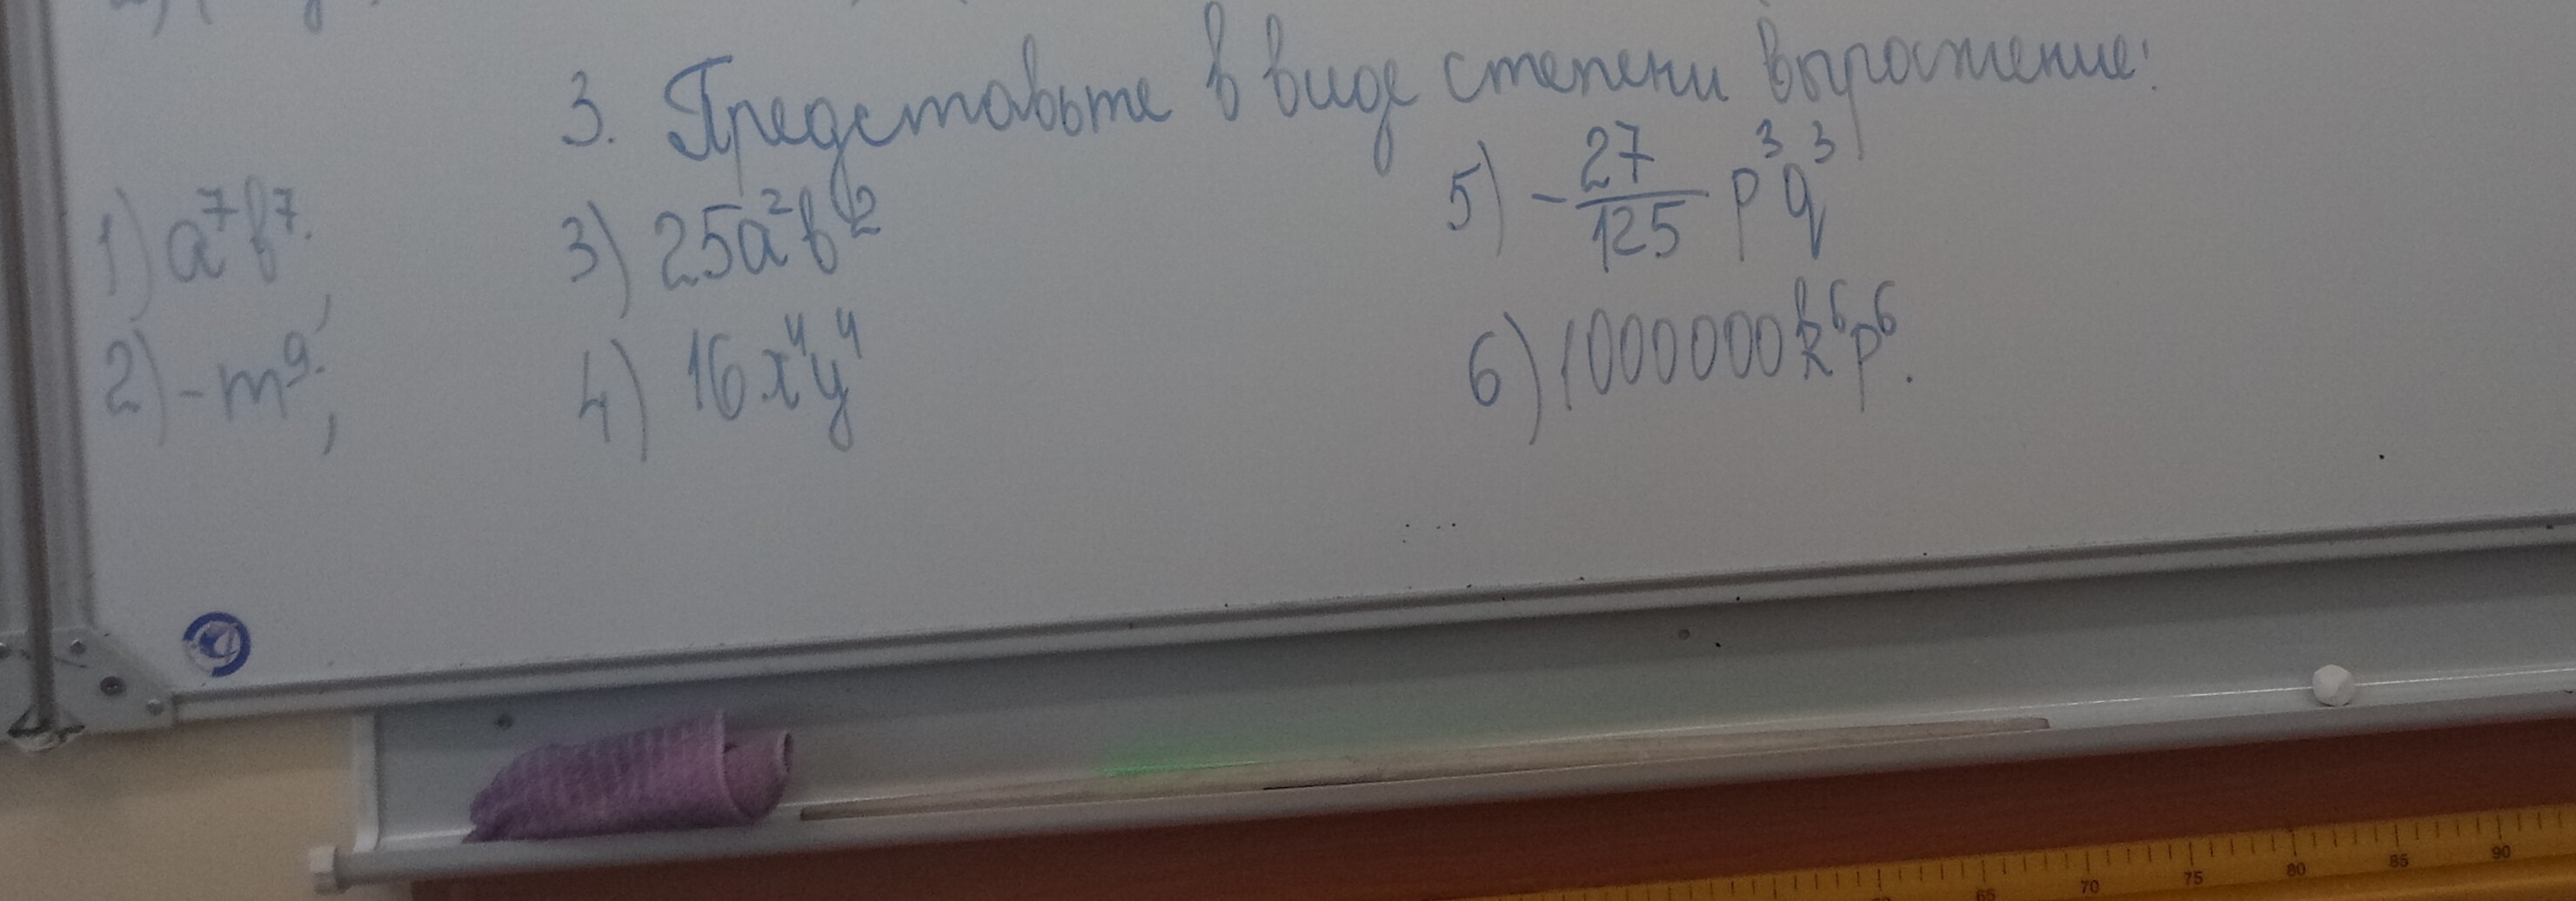 3. Представьте в виде степени выражение:
1) a⁷b⁷;
2) -m⁹;
3) 25a²b²
4) 16x⁴y⁴
5) -27/125 p³q³
6) 1000000k⁶p⁶.
65 70 75 80 85 90